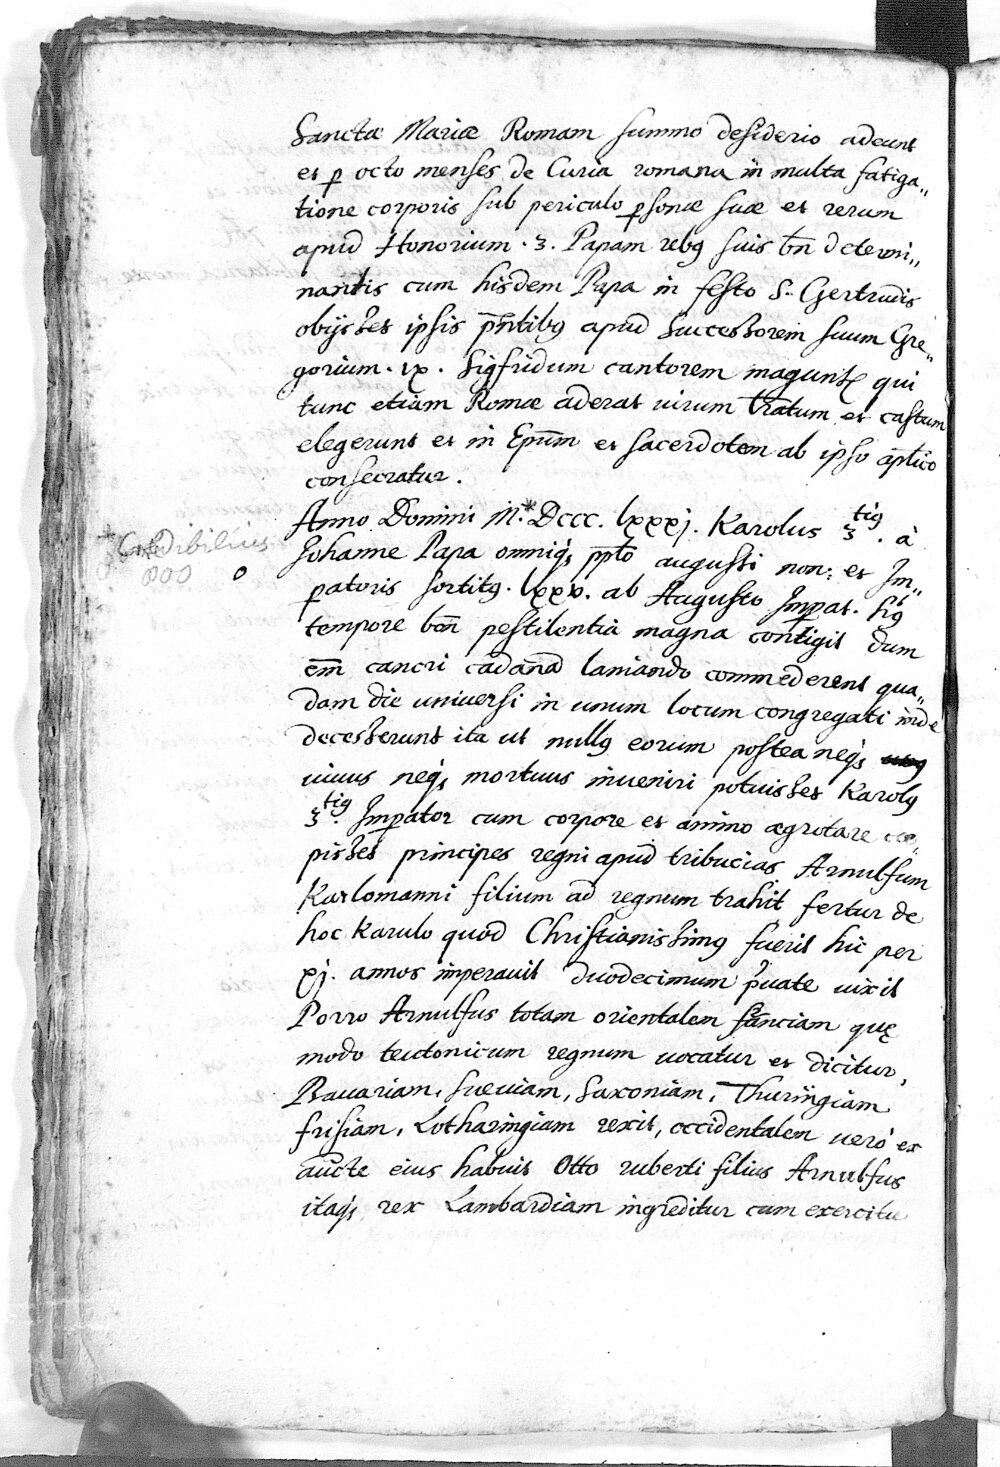 Sanctæ Mariæ Romam summo desiderio adeunt
et p octo menses de Curia romana in multa fatiga„
tione corporis sub periculo psonæ suæ et rerum
apud Honorium . 3 . Papam rebꝯ suis bn̄ determi„
nantis cum hisdem Papa in festo S. Gertrudis
obijsset ipsis pn̄tibꝯ apud Successorem suum Gre„
gorium . ix . Sigfridum cantorem magunt qui
tunc etiam Romæ aderat uirum tratum et castum
elegerunt et in Epūm et sacerdotem ab ipso ap̄lico
consecratur .
Anno Domini M.* Dccc. lxxxj. Karolus 3 tiꝯ . à
Credibilius
Johanne Papa omniqꝫ pplo augusti non: et Im„
patoris sortitꝯ . lxxx. ab Augusto Impat. hꝯ
tempore bn̄ pestilentia magna contigit dum
em̄ cancri cadauā laniando commederent qua„
dam die uniuersi in unum locum congregati inde
decesserunt ita ut nullꝯ eorum postea neqꝫ
uiuus neqꝫ mortuus inueniri potuisset Karolꝯ
3 tiꝯ . Impator cum corpore et animo ægrotare cœ„
pisset principes regni apud tribucias Arnulfum
Karlomanni filium ad regnum trahit fertur de
hoc Karulo quod Christianissimꝯ fuerit hic per
xj. annos imperauit duodecimum puate uixit
Porro Arnulfus totam orientalem franciam quę
modo teutonicum regnum uocatur et dicitur,
Bauariam, Sueuiam, Saxoniam, Thuringiam
frisiam, Lotharingiam rexit, occidentalem uero ex
aucte eius habuit Otto ruberti filius Arnulfus
itaqꝫ rex Lambardiam ingreditur cum exercitu